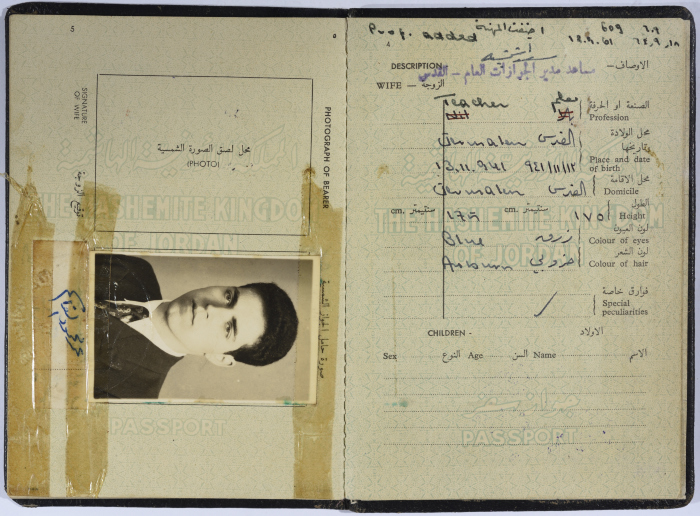 5
SIGNATURE
OF WIFE
توقيع الزوجة
محل لصق الصورة الشمسية
(PHOTO)
PHOTOGRAPH OF BEARER
صورة حامل الجواز الشمسية
THE HASHEMITE KINGDOM
OF JORDAN
PASSPORT
Prof. added
اضيفت المهنة
609
4
DESCRIPTION
الاوصاف –
مساعد مدير الجوازات العام – القدس
WIFE – الزوجة
Teacher معلم
الصنعة او الحرفة
Profession
محل الولادة
وتاريخها
Jerusalem القدس
Place and date
of birth
13.11.941 ٩٤١/١١/١٣
محل الاقامة
Domicile
Jerusalem القدس
الطول
Height
cm. سنتيمتر 175 cm. سنتيمتر ١٧٥
لون العيون
Colour of eyes
Blue زرق
لون الشعر
Colour of hair
Auburn خروبي
فوارق خاصة
Special
peculiarities
CHILDREN - الاولاد
Sex النوع Age السن Name الاسم
THE HASHEMITE KINGDOM
OF JORDAN
جواز سفر
PASSPORT